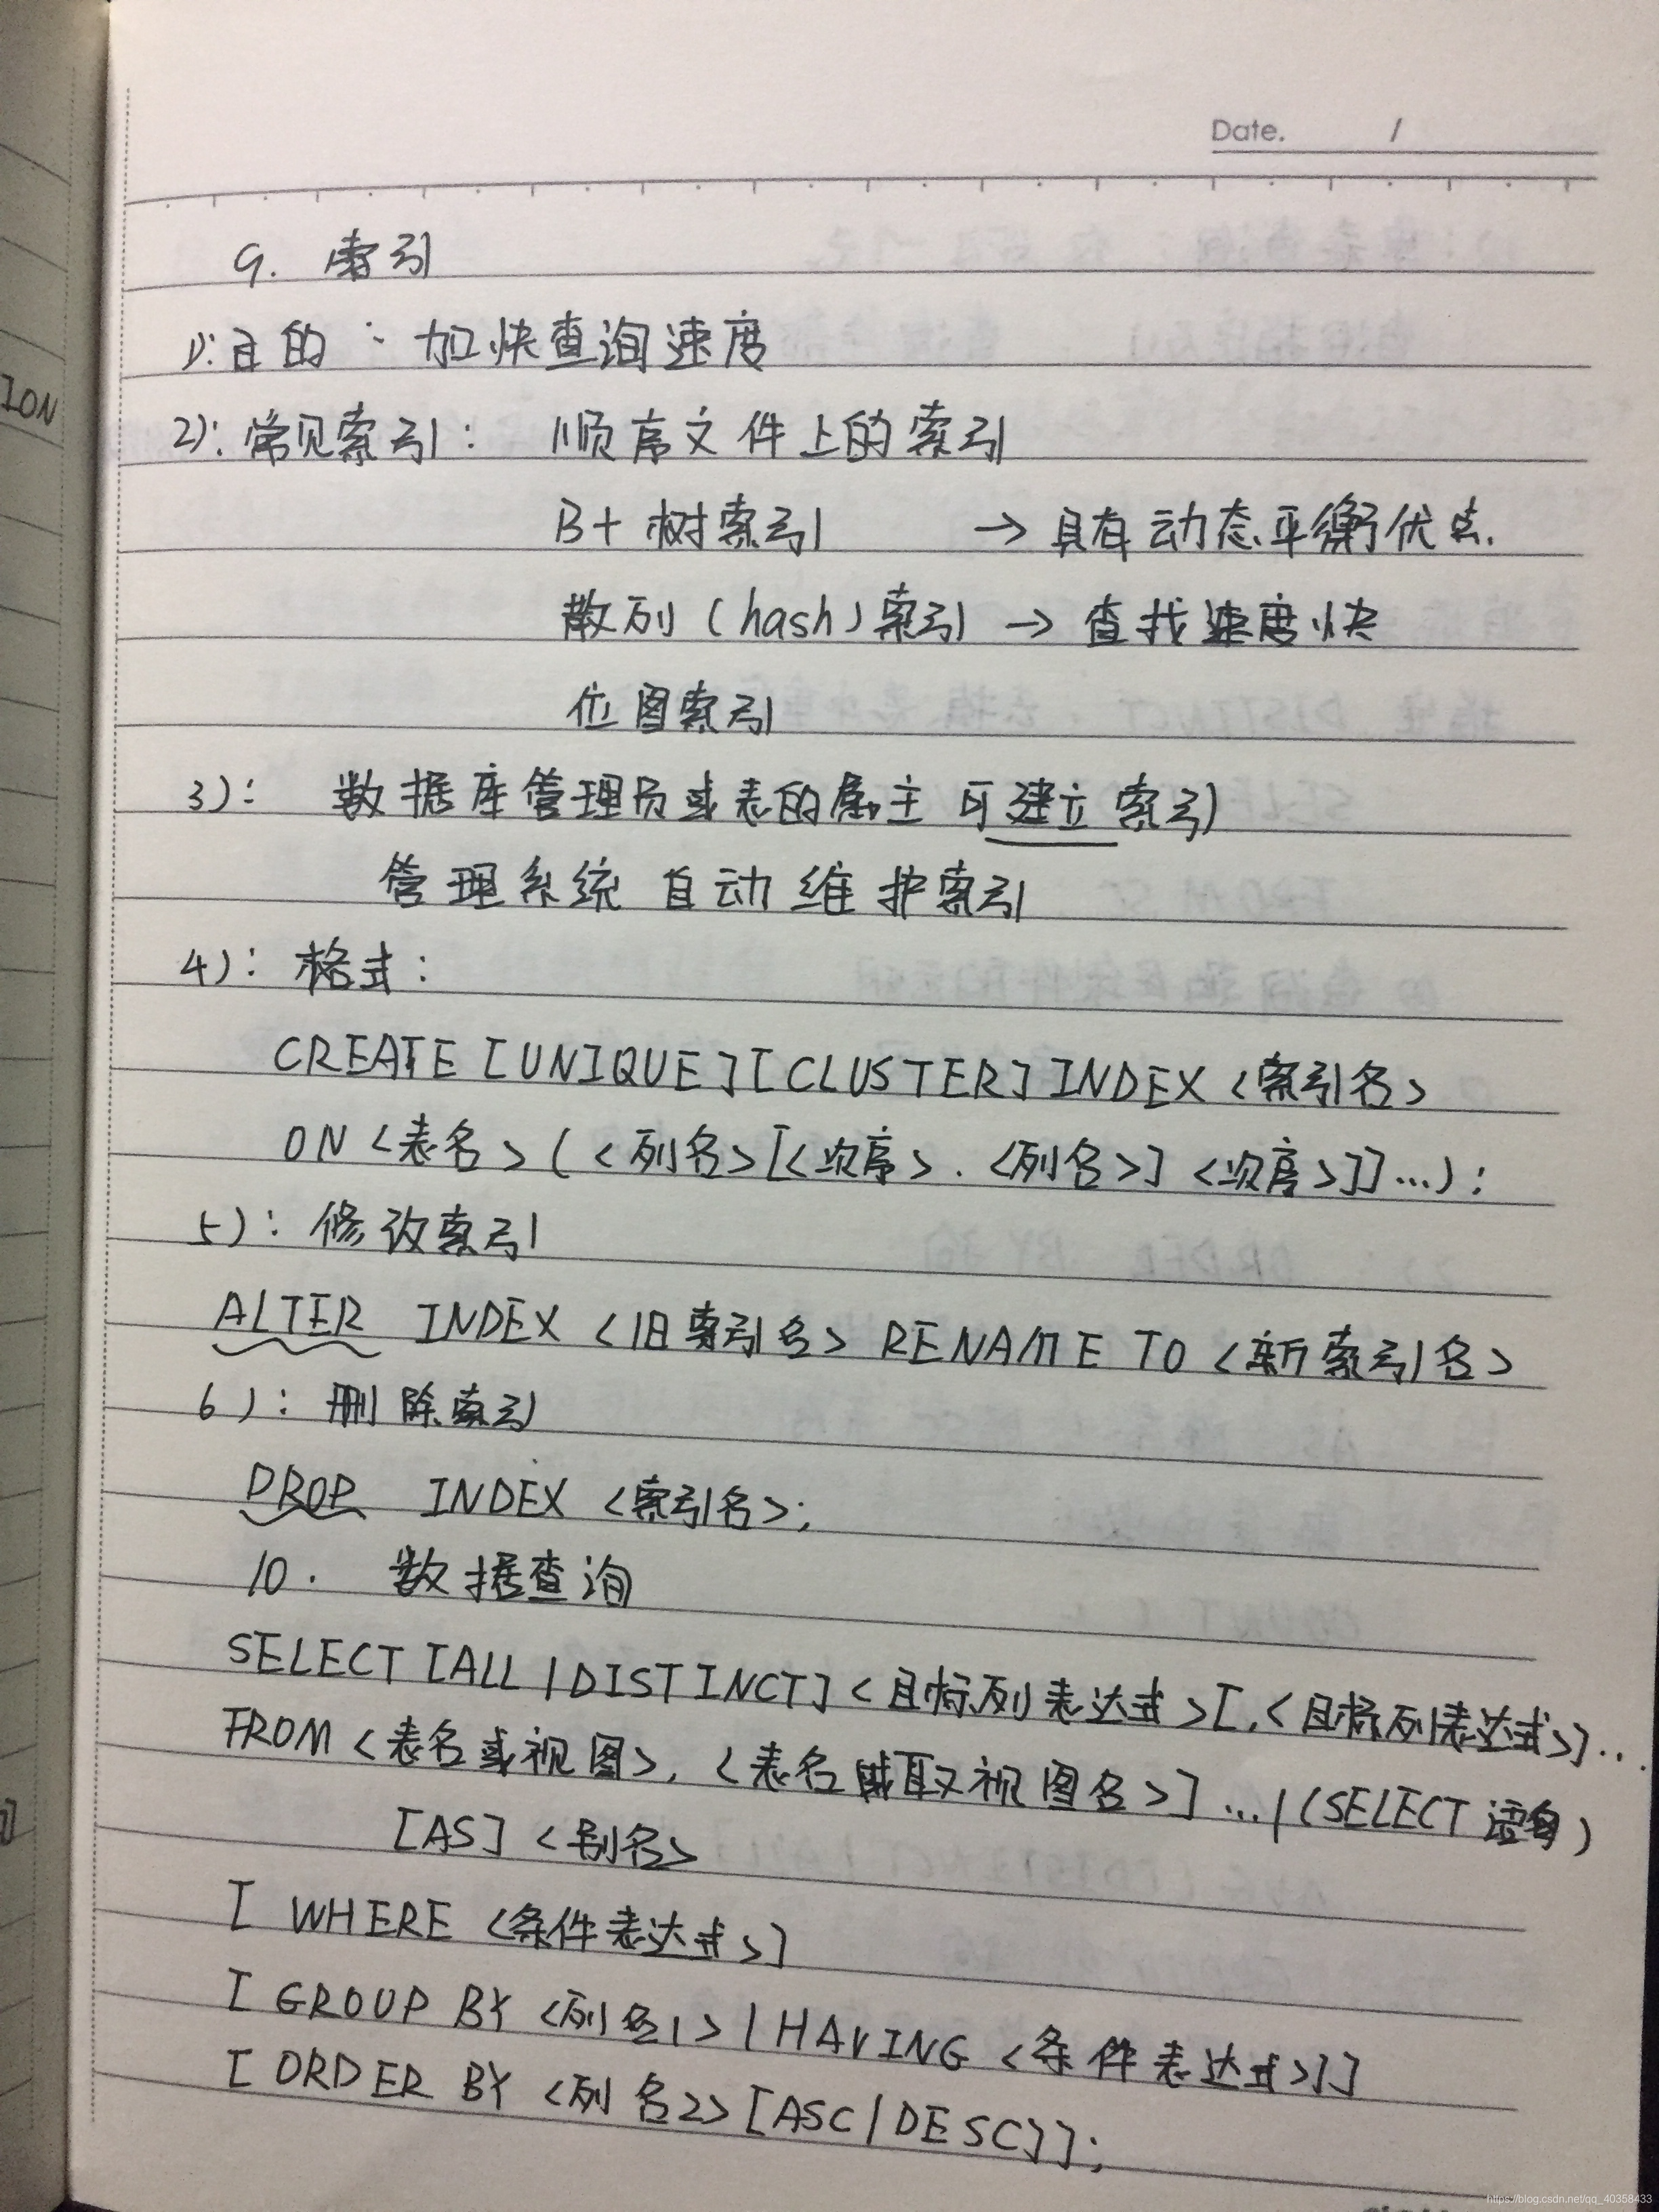 Date. /
9. 索引
1): 目的: 加快查询速度
2): 常见索引: 顺序文件上的索引
B+ 树索引 → 具有动态平衡优点.
散列 (hash) 索引 → 查找速度快
位图索引
3): 数据库管理员或表的属主可建立索引
管理系统 自动维护索引
4): 格式:
CREATE [UNIQUE][CLUSTER] INDEX <索引名>
ON <表名> ( <列名>[<次序> . <列名>] <次序>]]...);
5): 修改索引
ALTER INDEX <旧索引名> RENAME TO <新索引名>
6): 删除索引
DROP INDEX <索引名>;
10. 数据查询
SELECT [ALL | DISTINCT] <目标列表达式>[,<目标列表达式>]...
FROM <表名或视图>, <表名或取视图名>] ... | (SELECT 语句)
[AS] <别名>
[ WHERE <条件表达式>]
[ GROUP BY <列名1> | HAVING <条件表达式>]]
[ ORDER BY <列名2> [ASC | DESC]];
ION
https://blog.csdn.net/qq_40358433